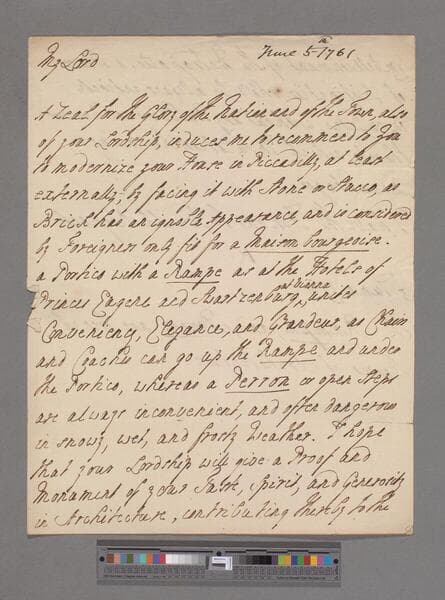 June 5th 1761
My Lord
A Zeal for the Glory of the Nation and of the Town, also
of your Lordship, induces me to recommend to you
to modernize your House in Piccadilly, at least
externally, by facing it with Stone or Stucco, as
Brick has an ignoble Appearance, and is considered
by Foreigners only fit for a Maison bourgeoise.
a Portico with a Rampe as at the Hotels of
at Vienna
Princes Eugene and Swartzenburg, unites
Conveniency, Elegance, and Grandeur, as Chairs
and Coaches can go up the Rampe and under
the Portico, whereas a Perron or open Steps
are always inconvenient, and often dangerous
in snowy, wet, and frosty Weather. I hope
that your Lordship will give a Proof and
Monument of your Taste, Spirit, and Generosity
in Architecture, contributing thereby to the